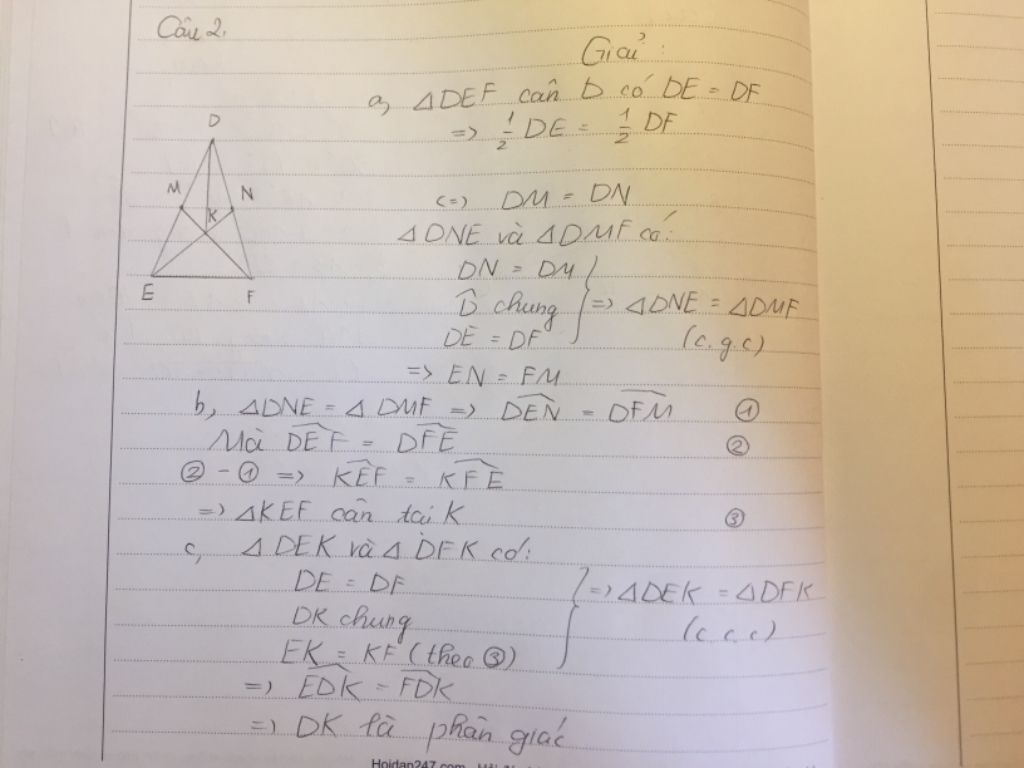 Câu 2.
Giải :
a, △DEF cân D có DE = DF
=> 1/2 DE = 1/2 DF
D
M
N
K
E
F
<=> DM = DN
△DNE và △DMF có:
DN = DM
D̂ chung } => △DNE = △DMF
DE = DF (c.g.c)
=> EN = FM
b, △DNE = △DMF => \widehat{DEN} = \widehat{DFM} ①
Mà \widehat{DEF} = \widehat{DFE} ②
② - ① => \widehat{KEF} = \widehat{KFE}
=> △KEF cân tại K ③
c, △DEK và △DFK có:
DE = DF } => △DEK = △DFK
DK chung (c c c)
EK = KF (theo ③)
=> \widehat{EDK} = \widehat{FDK}
=> DK là phân giác
Hoidan247.com